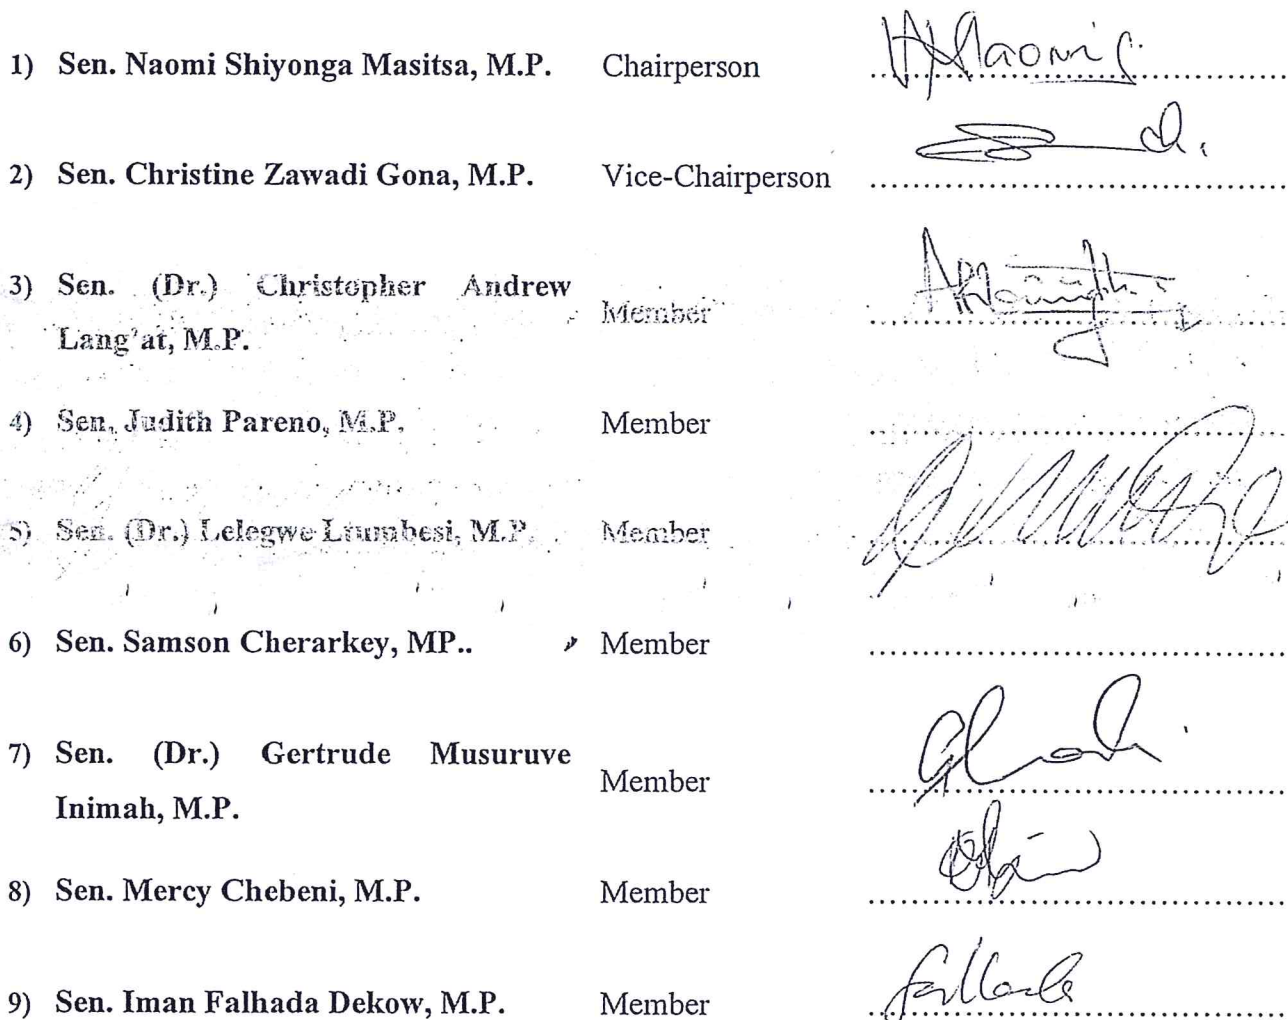 1) Sen. Naomi Shiyonga Masitsa, M.P. Chairperson
2) Sen. Christine Zawadi Gona, M.P. Vice-Chairperson
3) Sen. (Dr.) Christopher Andrew Member
Lang'at, M.P.
4) Sen. Judith Pareno, M.P. Member
5) Sen. (Dr.) Lelegwe Ltumbesi, M.P. Member
6) Sen. Samson Cherarkey, MP.. Member
7) Sen. (Dr.) Gertrude Musuruve Member
Inimah, M.P.
8) Sen. Mercy Chebeni, M.P. Member
9) Sen. Iman Falhada Dekow, M.P. Member